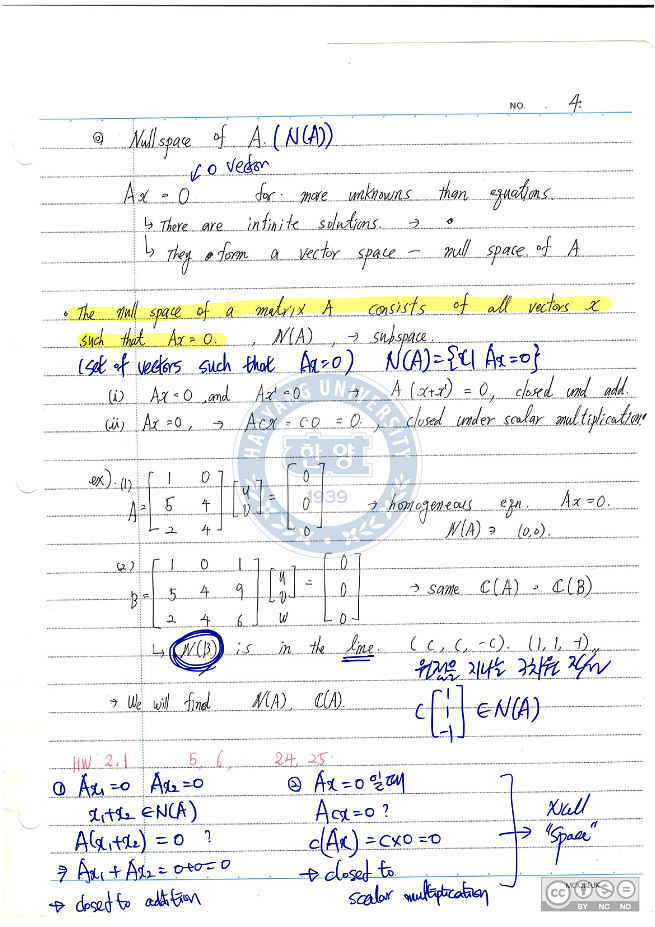 NO. 4.
◎ Nullspace of A. (N(A))
↙ 0 vector
Ax = 0 for more unknowns than equations.
↳ There are infinite solutions. →
↳ They form a vector space — null space of A
• The null space of a matrix A consists of all vectors x
such that Ax = 0. , N(A) , → subspace.
(set of vectors such that Ax=0) N(A)={x| Ax=0}
(i) Ax=0 ,and Ax'=0 → A(x+x') = 0, closed und add.
(ii) Ax=0, → Acx = c·0 = 0. , closed under scalar multiplication.
ex). (1) A= [1 0; 5 4; 2 4] [u; v] = [0; 0; 0] → homogeneous eqn. Ax=0.
N(A) ∋ (0,0).
(2) B= [1 0 1; 5 4 9; 2 4 6] [u; v; w] = [0; 0; 0] → same C(A) = C(B)
↳ N(B) is in the line. (c, c, -c). (1, 1, -1)
원점을 지나는
→ We will find N(A), C(A).
c [1; 1; -1] ∈ N(A)
HW 2.1 5, 6, 24, 25.
① Ax₁=0 Ax₂=0
x₁+x₂ ∈N(A)
A(x₁+x₂) = 0 ?
⇒ Ax₁ + Ax₂ = 0+0=0
→ closed to addition
② Ax=0 일때
Acx=0 ?
c(Ax) = c×0 =0
→ closed to
scalar multiplication
→ Null
"Space"
HANYANG UNIVERSITY
한양
1939
cc BY NC ND